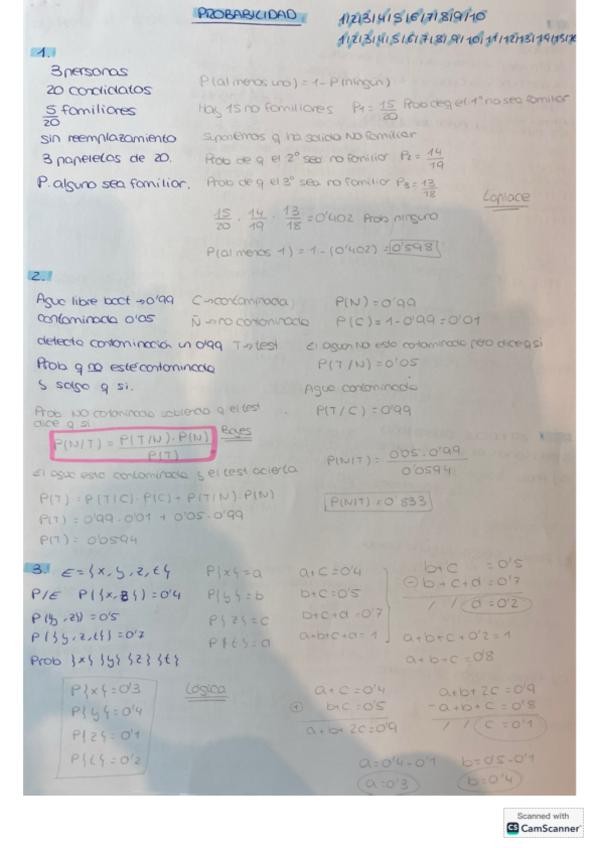 PROBABILIDAD
1/2/3/4/5/6/7/8/9/10
1.
3 personas
20 candidatos
5 familiares
20
sin reemplazamiento
3 papeletas de 20.
P. alguno sea familiar.
P(al menos uno) = 1 - P(ningún)
Hay 15 no familiares P₁ = 15/20 Prob de q el 1º no sea familiar
Suponemos q ha salido NO familiar
Prob de q el 2º sea no familiar P₂ = 14/19
Prob de q el 3º sea no familiar P₃ = 13/18
Laplace
15/20 · 14/19 · 13/18 = 0'402 Prob ninguno
P(al menos 1) = 1 - (0'402) = 0'598
2.
Agua libre bact → 0'99
contaminada 0'05
detecta contaminación un 0'99
Prob q no esté contaminada
y salga q si.
C → contaminada
N → no contaminada
T → test
P(N) = 0'99
P(C) = 1 - 0'99 = 0'01
El agua NO esta contaminada pero dice q si
P(T/N) = 0'05
Agua contaminada
P(T/C) = 0'99
Prob NO contaminada sabiendo q el test
dice q si
P(N/T) = P(T/N) · P(N) / P(T)
Bayes
El agua esta contaminada y el test acierta
P(T) = P(T/C) · P(C) + P(T/N) · P(N)
P(T) = 0'99 · 0'01 + 0'05 · 0'99
P(T) = 0'0594
P(N/T) = 0'05 · 0'99 / 0'0594
P(N/T) = 0'833
3. E = {x, y, z, t}
P/E P({x, z}) = 0'4
P(y, z}) = 0'5
P({y, z, t}) = 0'7
Prob {x} {y} {z} {t}
P{x} = a
P{y} = b
P{z} = c
P{t} = d
a + c = 0'4
b + c = 0'5
b + c + d = 0'7
a + b + c + d = 1
b + c = 0'5
- b + c + d = 0'7
/ / d = 0'2
a + b + c + 0'2 = 1
a + b + c = 0'8
P{x} = 0'3
P{y} = 0'4
P{z} = 0'1
P{t} = 0'2
Lógica
a + c = 0'4
+ b + c = 0'5
a + b + 2c = 0'9
a + b + 2c = 0'9
- a + b + c = 0'8
/ / c = 0'1
a = 0'4 - 0'1
a = 0'3
b = 0'5 - 0'1
b = 0'4
Scanned with
CS CamScanner